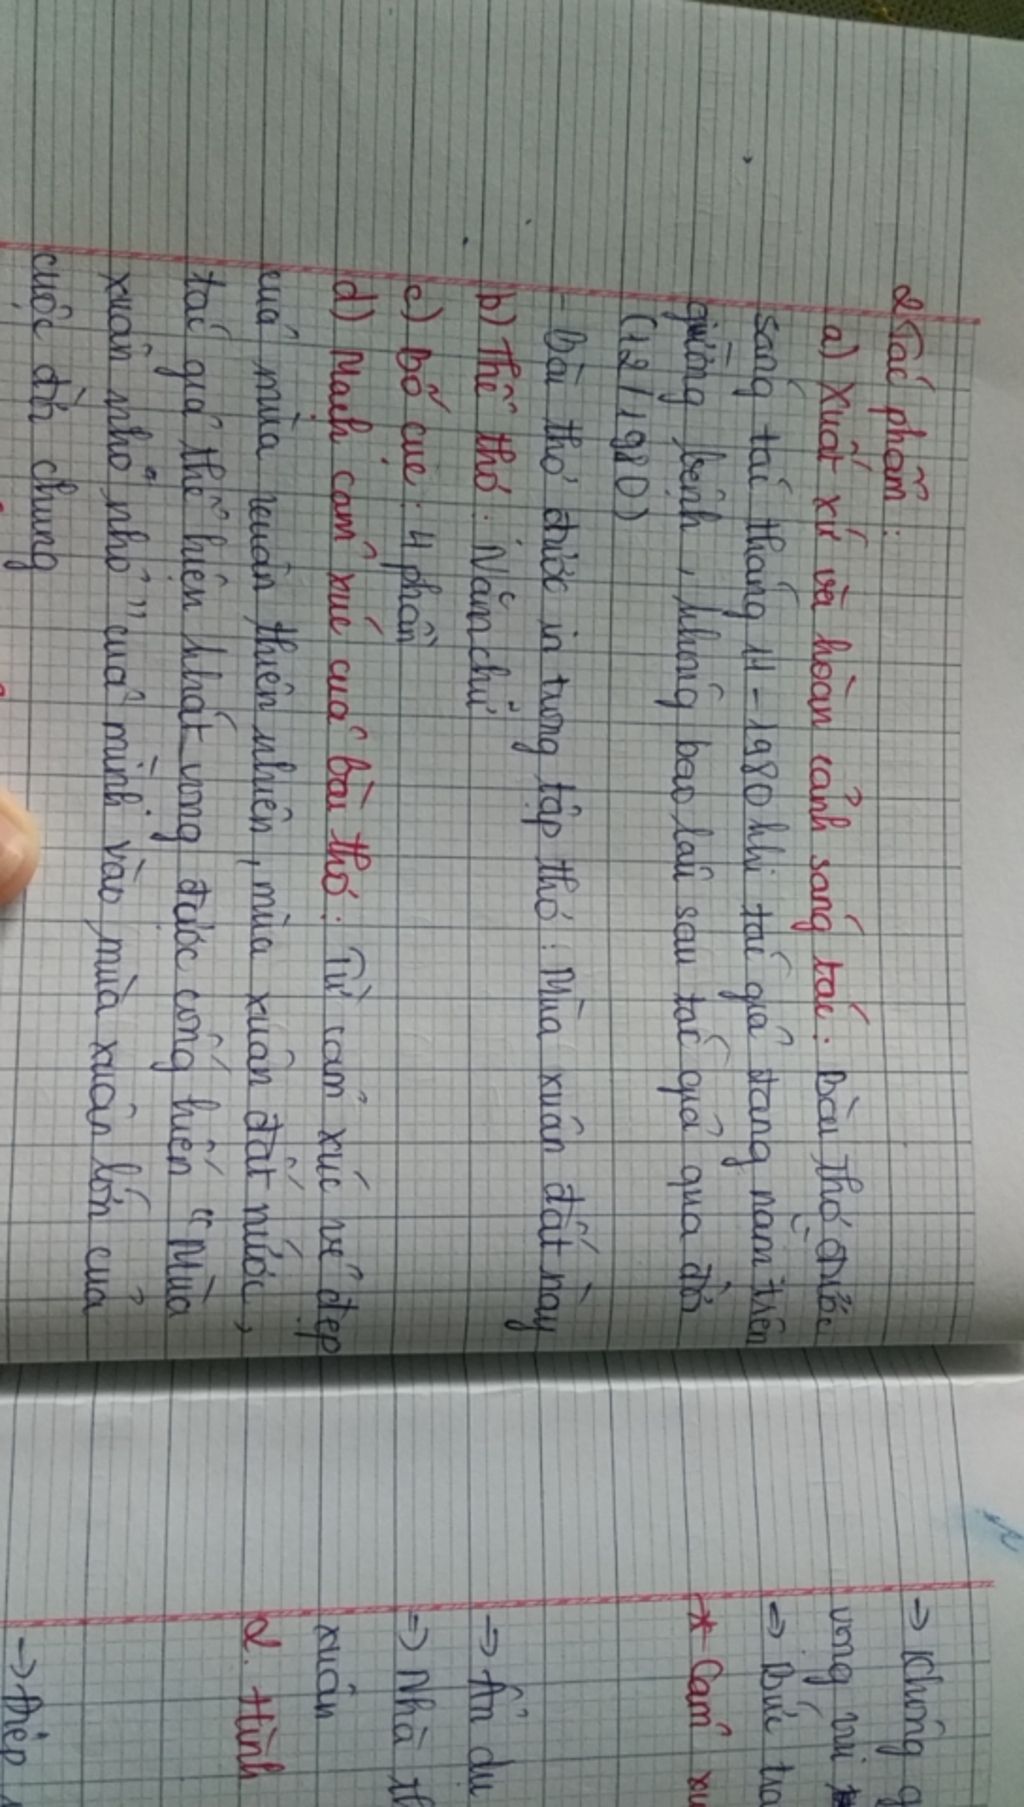 2 Tác phẩm:
a) Xuất xứ và hoàn cảnh sáng tác: Bài thơ được
sáng tác tháng 11-1980 khi tác giả đang nằm trên
giường bệnh, không bao lâu sau tác giả qua đời
(12/1980)
- Bài thơ được in trong tập thơ: Mùa xuân đất này
b) Thể thơ: Năm chữ
c) Bố cục: 4 phần
d) Mạch cảm xúc của bài thơ: Từ cảm xúc vẻ đẹp
của mùa xuân thiên nhiên, mùa xuân đất nước,
tác giả thể hiện khát vọng được cống hiến "Mùa
xuân nho nhỏ" của mình vào mùa xuân lớn của
cuộc đời chung
→ Không g
vọng vui
⇒ Bức tra
* Cảm xu
→ Ẩn dụ
⇒ Nhà th
xuân
2. Hình
→ Điệp